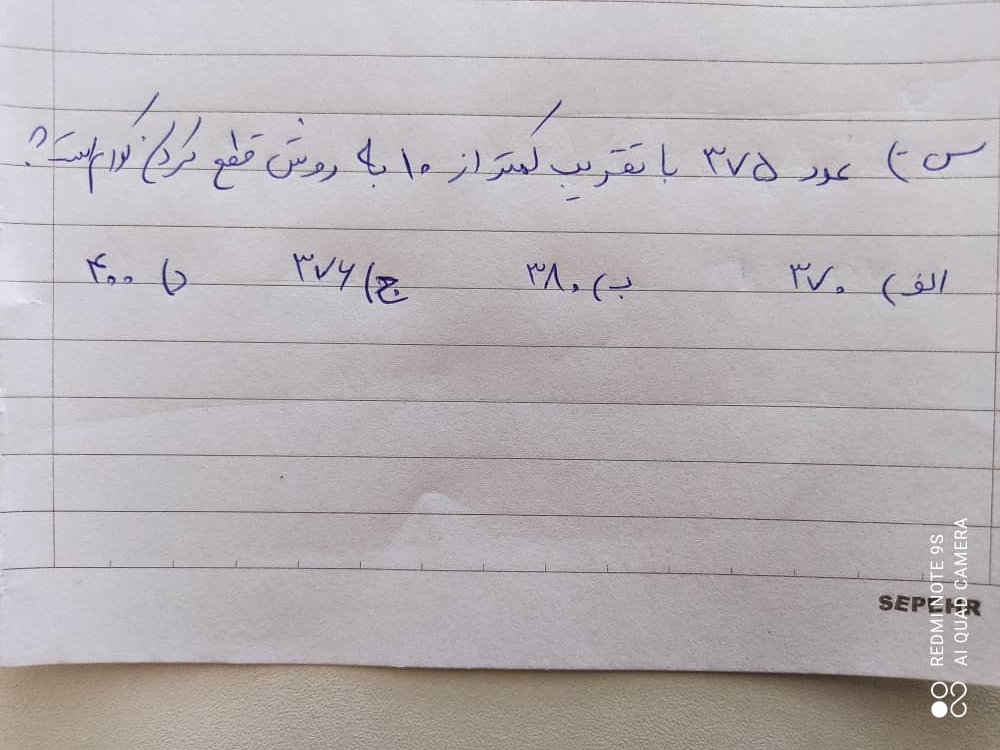 س -) عدد ۳۷۵ با تقریب کمتر از ۱۰ به روش قطع کردن کدام است؟
الف) ۳۷۰ ب) ۳۸۰ ج) ۳۷۶ د) ۴۰۰
SEPEHR
REDMI NOTE 9S
AI QUAD CAMERA